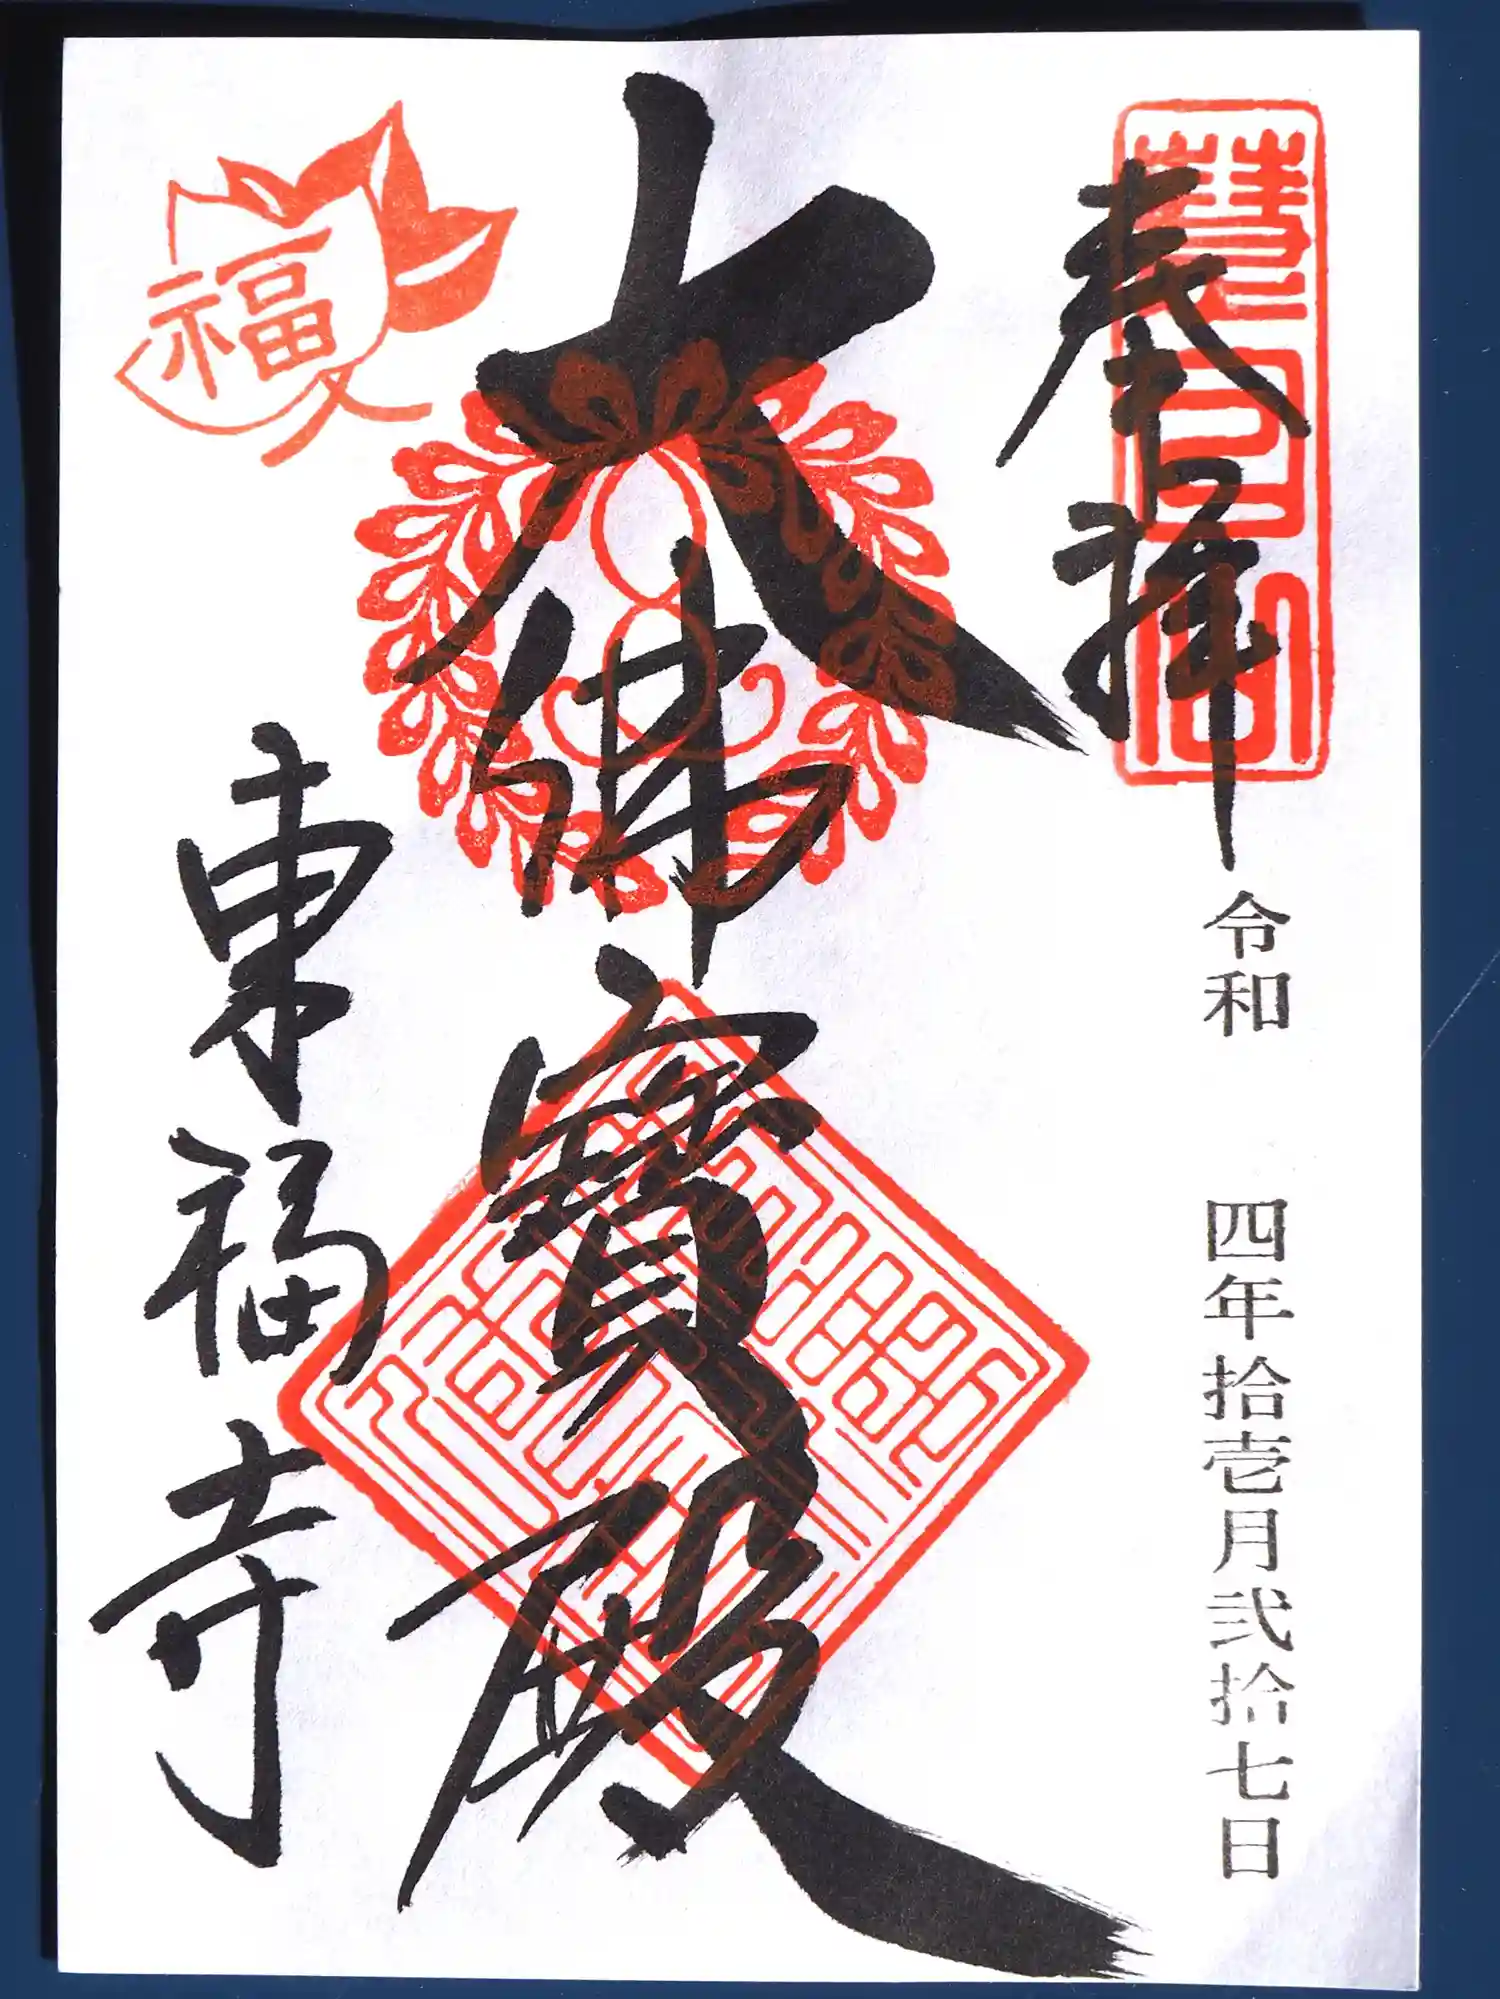 奉拝
令和 四年拾壱月弐拾七日
大佛寶殿
福
東福寺